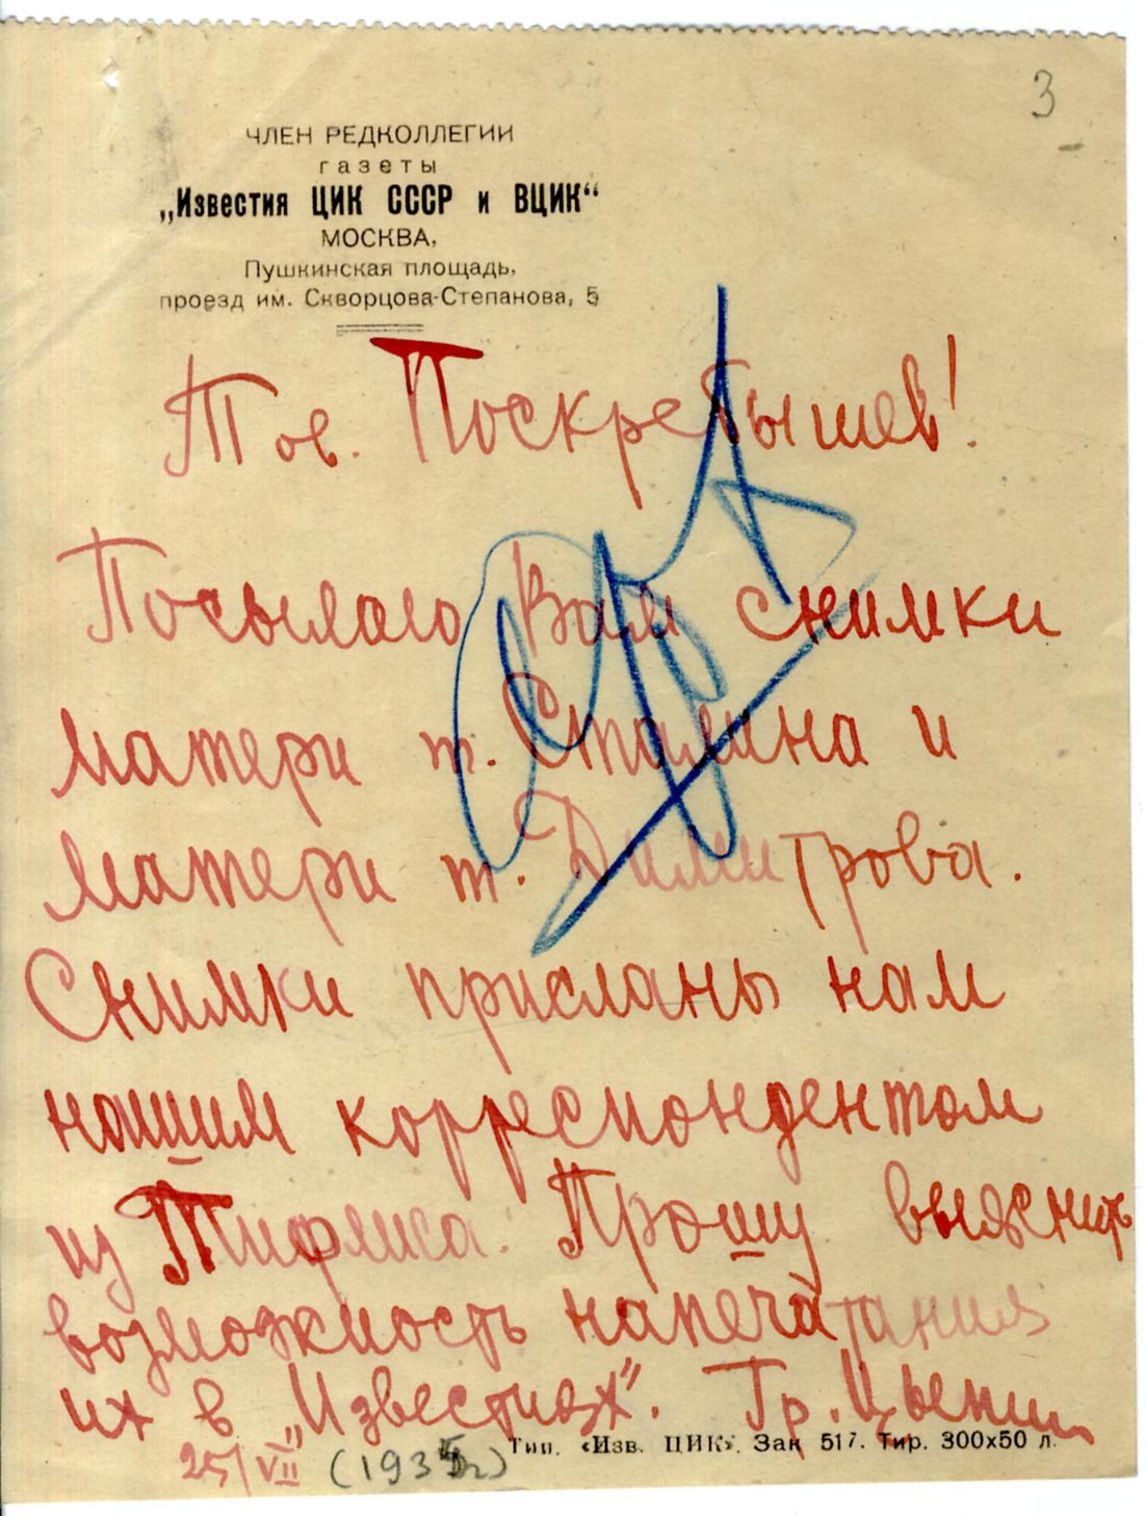 3
ЧЛЕН РЕДКОЛЛЕГИИ
газеты
„Известия ЦИК СССР и ВЦИК“
МОСКВА,
Пушкинская площадь,
проезд им. Скворцова-Степанова, 5
Тов. Поскребышев!
Посылаю Вам снимки
матери т. Сталина и
матери т. Димитрова.
Снимки присланы нам
нашим корреспондентом
из Тифлиса. Прошу выяснить
возможность напечатания
их в „Известиях”. Гр. Цыпин
25/VII (1935г)
Тип. «Изв. ЦИК». Зак 517. Тир. 300х50 л.